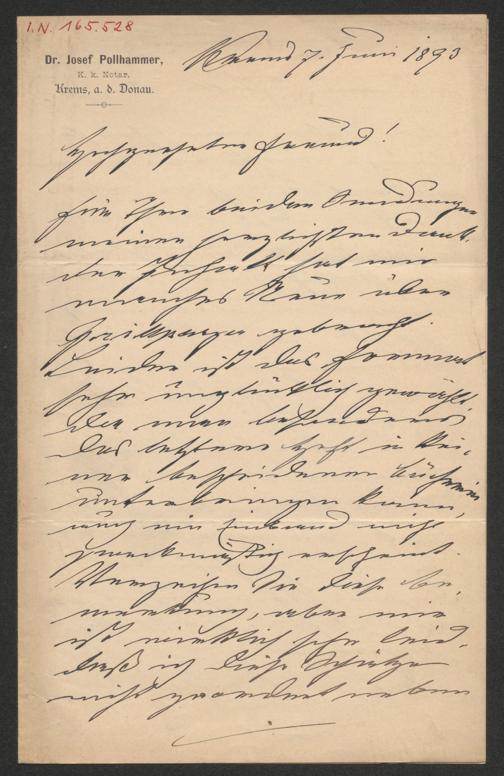 I.N. 165.528
Dr. Josef Pollhammer,
K. k. Notar.
Krems, a. d. Donau.
Krems 7. Juni 1893
Hochgeehrter Freund!
Für Ihre beiden Sendungen
meinen herzlichsten Dank.
Der Inhalt hat mir
manches Neue über
Grillparzer gebracht.
Leider ist das Format
sehr unglücklich gewählt,
da man besonders
das letztere Heft in kei-
ner bescheidenen Bücherei
unterbringen kann,
auch ein Einband nicht
zweckmäßig erscheint.
Verzeihen Sie diese Be-
merkung, aber mir
ist wirklich sehr leid,
daß ich diese Schätze
nicht geordnet neben